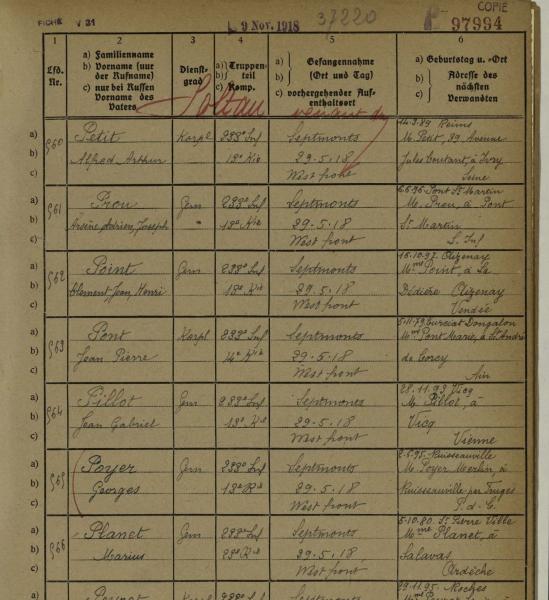 FICHE V 21
9 Nov. 1918
37220
COPIE
P 97994
1 2 3 4 5 6
Lfd. Nr.
a) Familienname
b) Vorname (nur der Rufname)
c) nur bei Russen Vorname des Vaters
Dienst-grad
a) Truppen-teil
b)
c) Komp.
a) Gefangennahme
b) (Ort und Tag)
c) vorhergehender Auf-enthaltsort
a) Geburtstag u. -Ort
b) Adresse des
c) nächsten Verwandten
Soltau
560
a) Petit Korpl 233e Inf Septmonts 14.2.89 Reims
M. Petit, 39 Avenue
b) Alfred Arthur 18e Kie 29.5.18 Jules Coutant, à Ivry
c) West front Seine
561
a) Prou Gem 233e Inf Septmonts 6.6.96 Pont St Martin
M. Prou, à Pont
b) Arsène Adrien, Joseph 18e Kie 29.5.18 St Martin
c) West front L. Inf
562
a) Point Gem 233e Inf Septmonts 15.10.97 Olizenay
Mme Point, à La
b) Clement Jean, Henri 18e Kie 29.5.18 Dédière Olizenay
c) West front Vendée
563
a) Pont Korpl 233e Inf Septmonts 5.11.79 Curciat Dongalon
Mme Pont Marie, à St André
b) Jean Pierre 14e Kie 29.5.18 de Corcy
c) West front Ain
564
a) Pillot Gem 233e Inf Septmonts 28.11.93 Vicq
M. Pillot, à
b) Jean Gabriel 18e Kie 29.5.18 Vicq
c) West front Vienne
565
a) Poyer Gem 233e Inf Septmonts 2.6.95 Ruisseauville
M. Poyer Merlin, à
b) Georges 29.5.18 Ruisseauville par Fruges
c) West front P. d. C.
566
a) Planet Gem 233e Inf Septmonts 5.10.80 St Pierre Ville
Mme Planet, à
b) Marius 29.5.18 Salavas
c) West front Ardèche
a) Korpl Septmonts 29.11.95 Roches